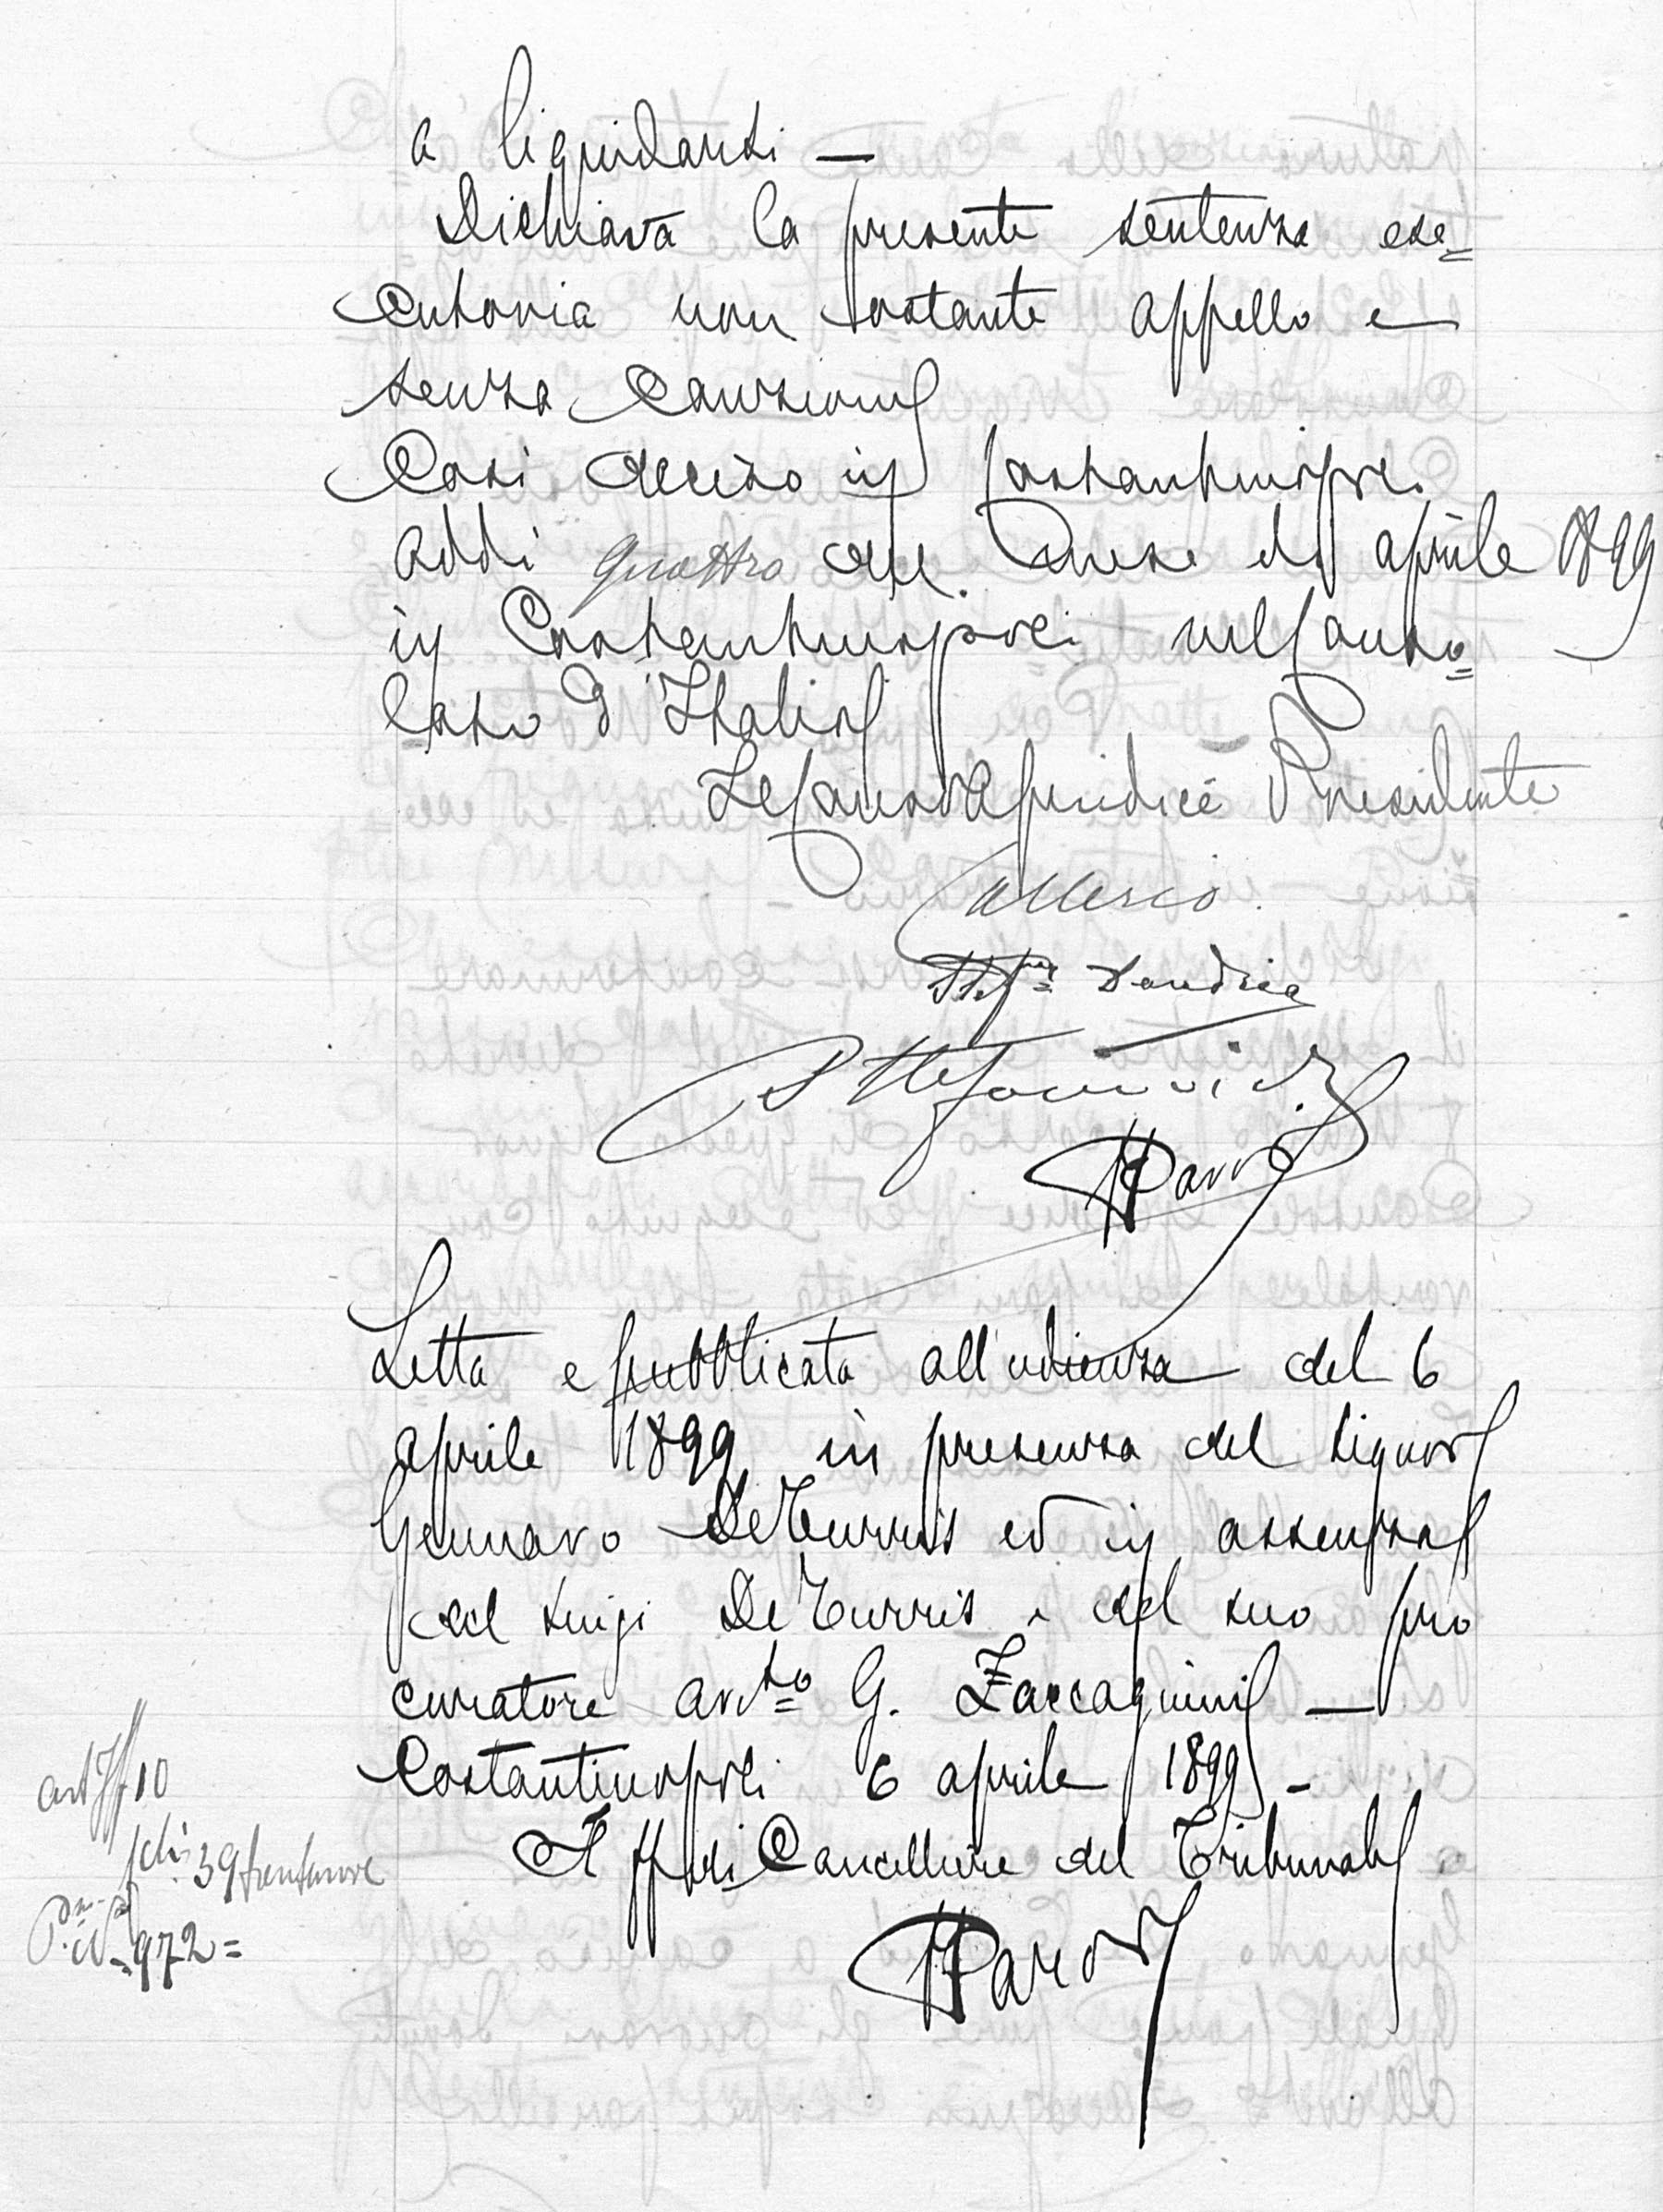 a liquidarsi —
Dichiara la presente sentenza ese=
cutoria non ostante appello e
senza cauzione
Così deciso in Costantinopoli
addì quattro del mese di aprile 1899
in Costantinopoli nel Conso=
lato d'Italia
Il Console Giudice Presidente
Stef.
P Stefanovich
HParodi
Letta e pubblicata all'udienza del 6
aprile 1899 in presenza del Signor
Gennaro De Turris ed in assenza
del Luigi De Turris e del suo pro
curatore avv.to G. Zaccagnini —
Costantinopoli 6 aprile 1899 -
Il ff di Cancelliere del Tribunale
HParodi
art 77 10
39 trentanove
P. N. 972=